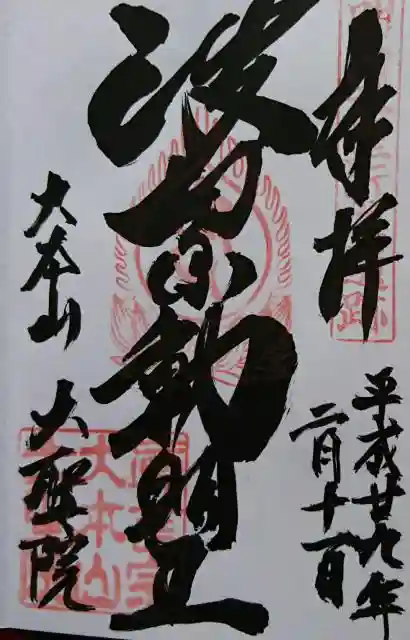 奉拝
平成廿九年
二月十一日
波切不動明王
大本山
大聖院
大本山